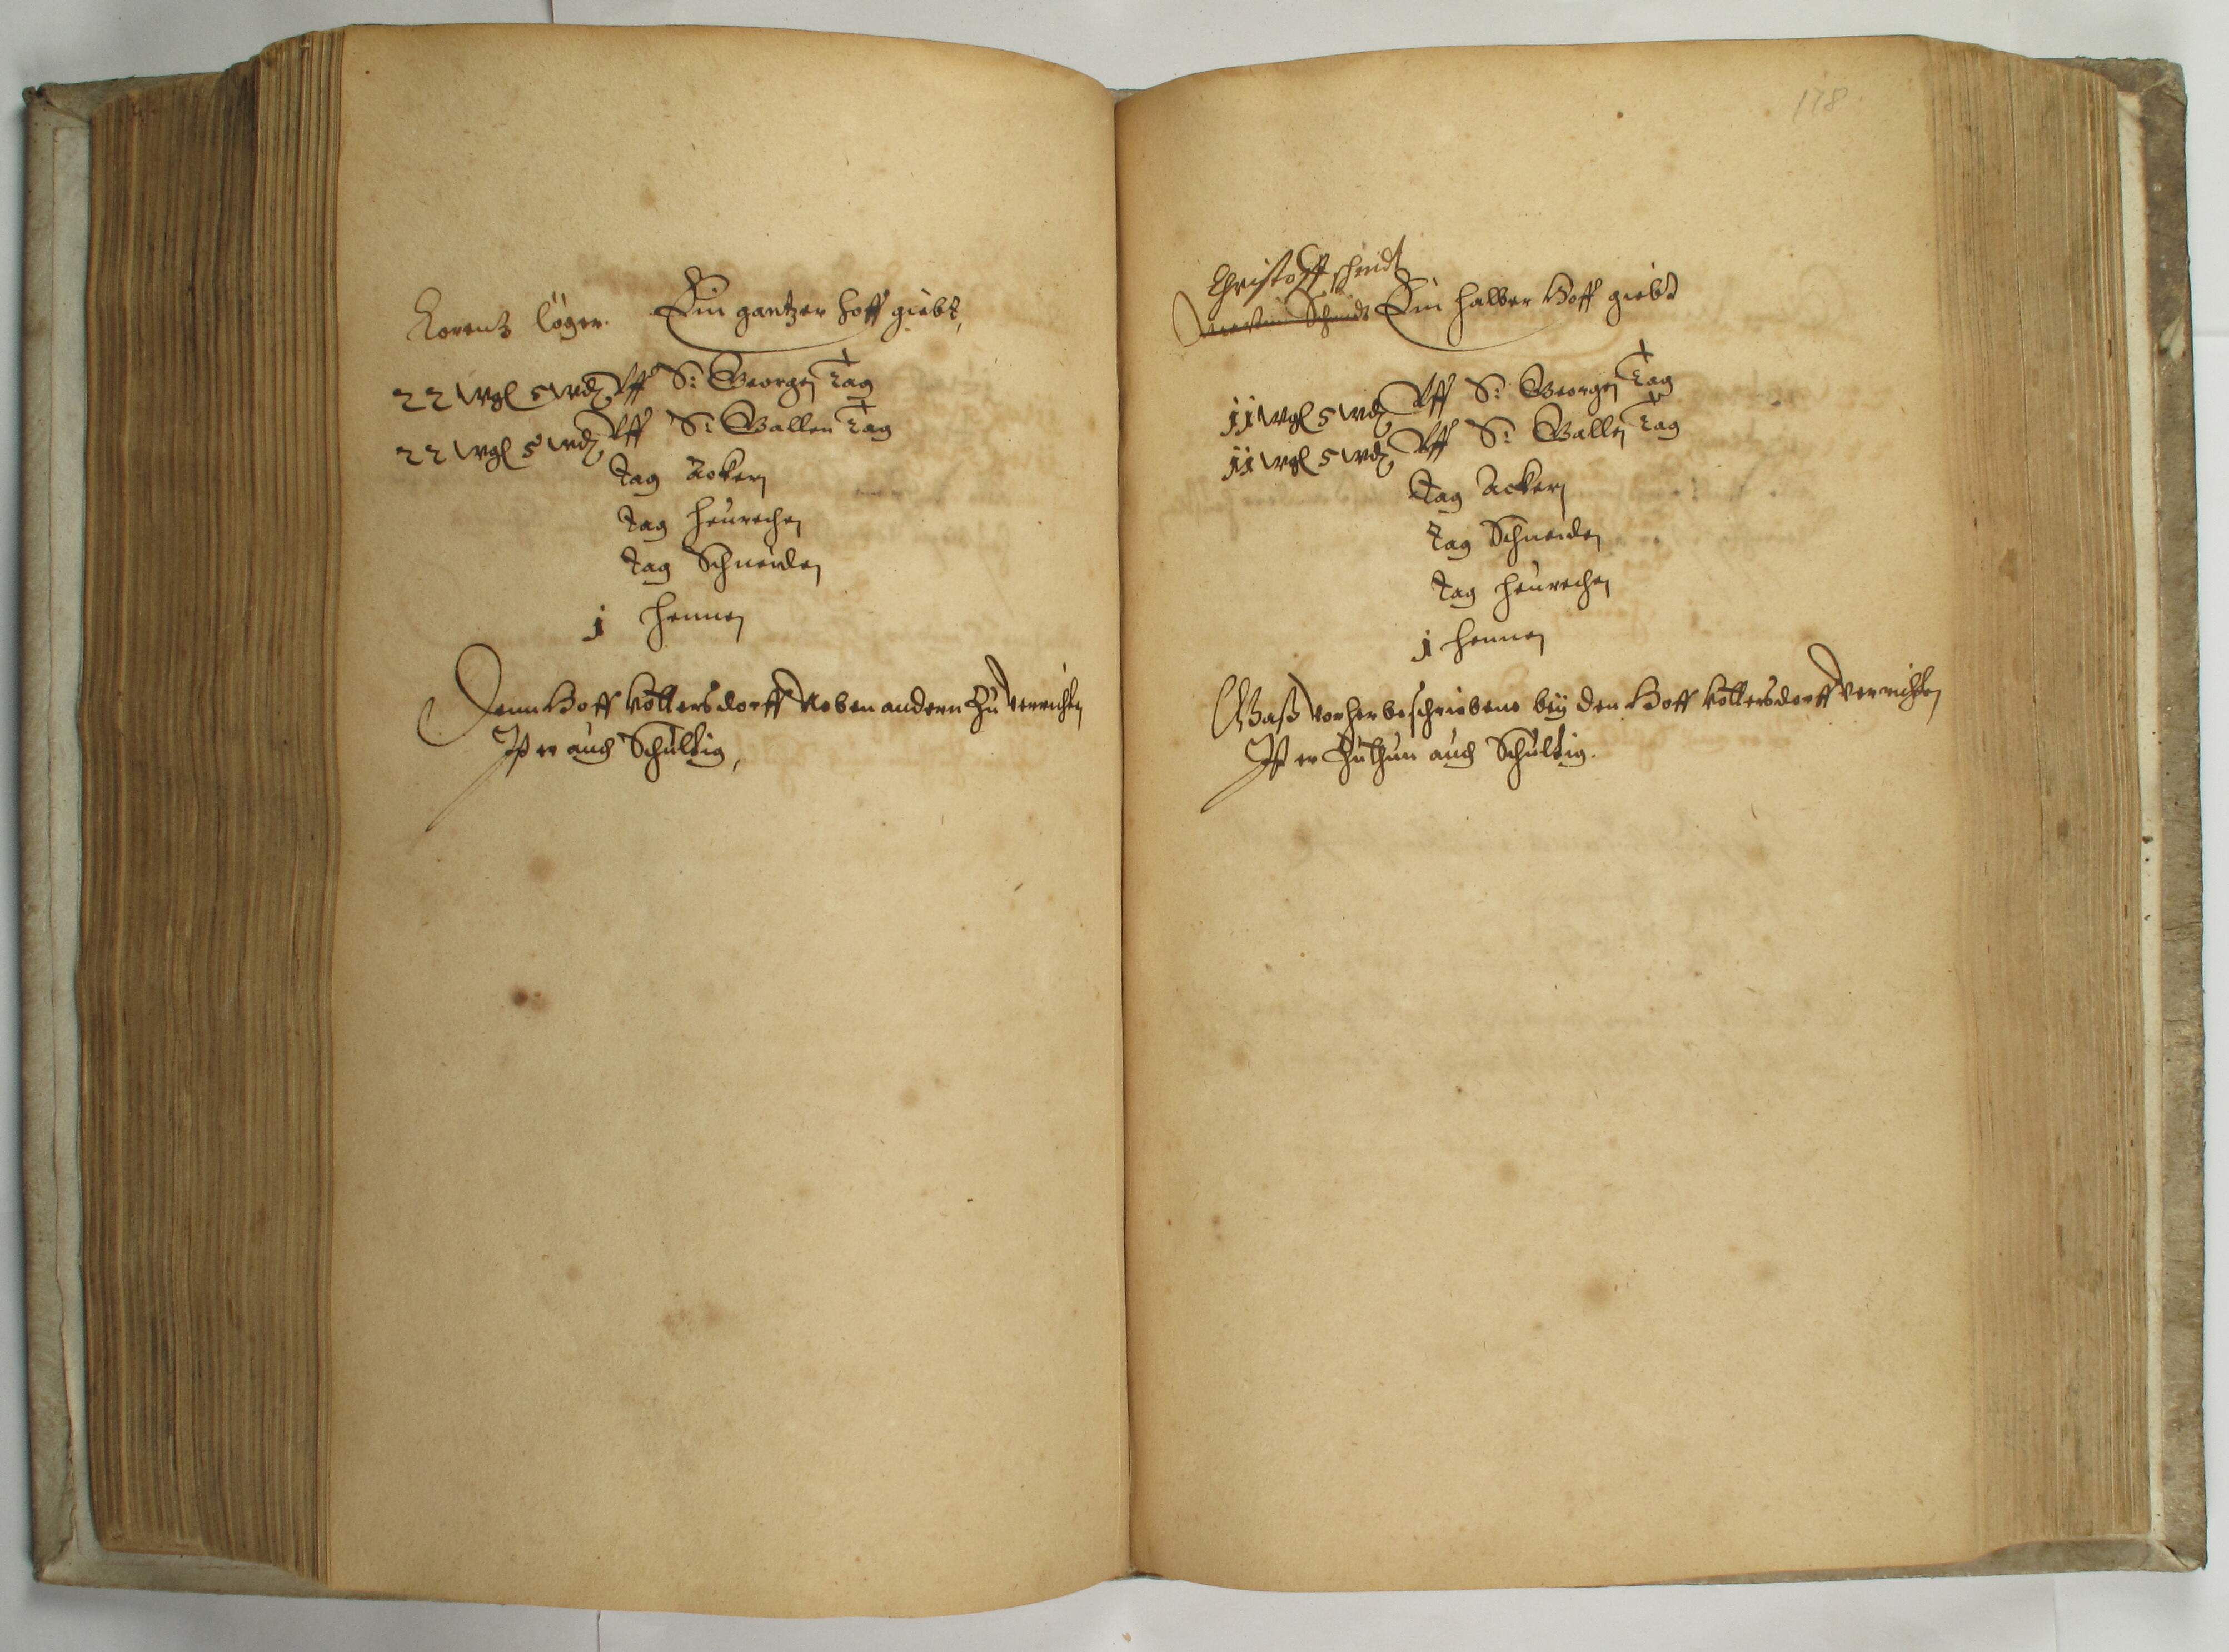 Lorentz Löger. Ein gantzer hoff giebt,
22 wgl 5 wd Uff S: Georgen Tag
22 wgl 5 wd Uff S: Gallen Tag
Tag Ackern
Tag heurechen
Tag Schneiden
j hennen
Denn Hoff Kottersdorff Neben andern Zu verrichten
Ist er auch Schultig,
178
Christoff schmidt
Merttin Schmidt Ein halber Hoff giebt
jj wgl 5 wd Uff S: Georgen Tag
jj wgl 5 wd Uff S: Gallen Tag
Tag Ackern
Tag Schneiden
Tag heurechen
j hennen
Waß vorher beschriebene beÿ den Hoff Kottersdorff verrichten
Ist er Zu thun auch Schultig.